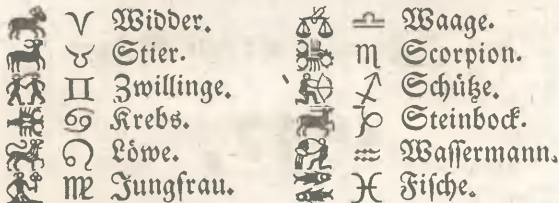 ♈ Widder.
♉ Stier.
♊ Zwillinge.
♋ Krebs.
♌ Löwe.
♍ Jungfrau.
♎ Waage.
♏ Scorpion.
♐ Schütze.
♑ Steinbock.
♒ Wassermann.
♓ Fische.